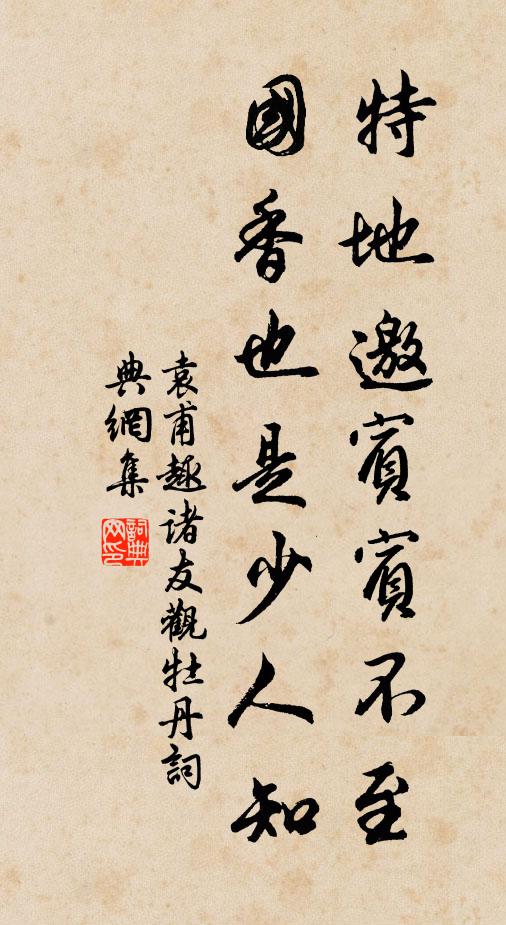 特地邀賓賓不至
國香也是少人知
袁甫趣诸友觀牡丹詞
典網集
詞典网印